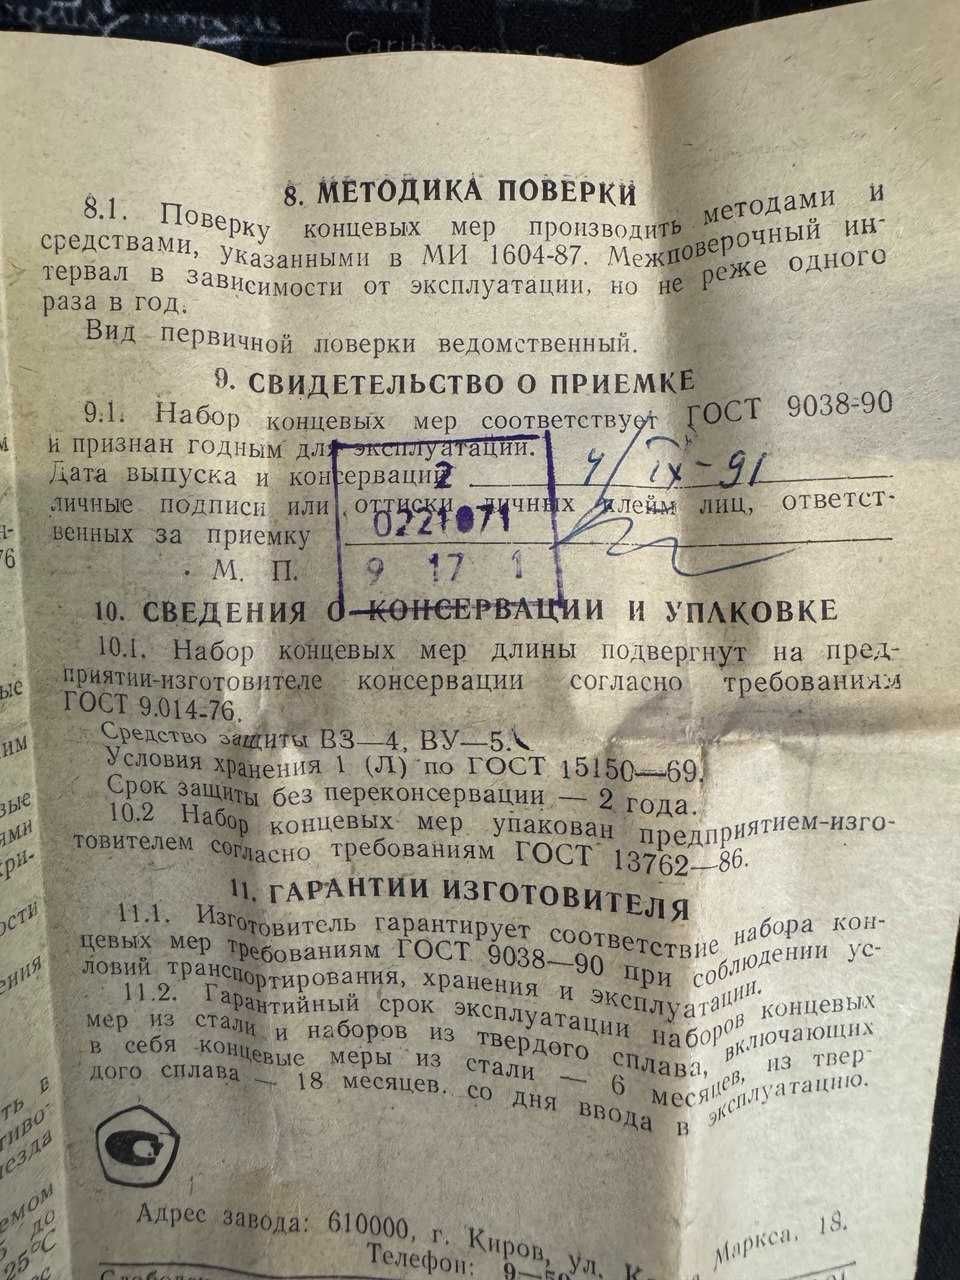 Caribbean
8. МЕТОДИКА ПОВЕРКИ
8.1. Поверку концевых мер производить методами и
средствами, указанными в МИ 1604-87. Межповерочный ин-
тервал в зависимости от эксплуатации, но не реже одного
раза в год.
Вид первичной поверки ведомственный.
9. СВИДЕТЕЛЬСТВО О ПРИЕМКЕ
9.1. Набор концевых мер соответствует ГОСТ 9038-90
и признан годным для эксплуатации.
Дата выпуска и консервации 4/IX-91
2
личные подписи или оттиски личных клейм лиц, ответст-
0221071
венных за приемку
М. П.
9 17 1
10. СВЕДЕНИЯ О КОНСЕРВАЦИИ И УПАКОВКЕ
10.1. Набор концевых мер длины подвергнут на пред-
приятии-изготовителе консервации согласно требованиям
ГОСТ 9.014-76.
Средство защиты ВЗ—4, ВУ—5.
Условия хранения 1 (Л) по ГОСТ 15150—69.
Срок защиты без переконсервации — 2 года.
10.2 Набор концевых мер упакован предприятием-изго-
товителем согласно требованиям ГОСТ 13762—86.
11. ГАРАНТИИ ИЗГОТОВИТЕЛЯ
11.1. Изготовитель гарантирует соответствие набора кон-
цевых мер требованиям ГОСТ 9038—90 при соблюдении ус-
ловий транспортирования, хранения и эксплуатации.
11.2. Гарантийный срок эксплуатации наборов концевых
мер из стали и наборов из твердого сплава, включающих
в себя концевые меры из стали — 6 месяцев, из твер-
дого сплава — 18 месяцев. со дня ввода в эксплуатацию.
Адрес завода: 610000, г. Киров, ул. К. Маркса, 18.
Телефон: